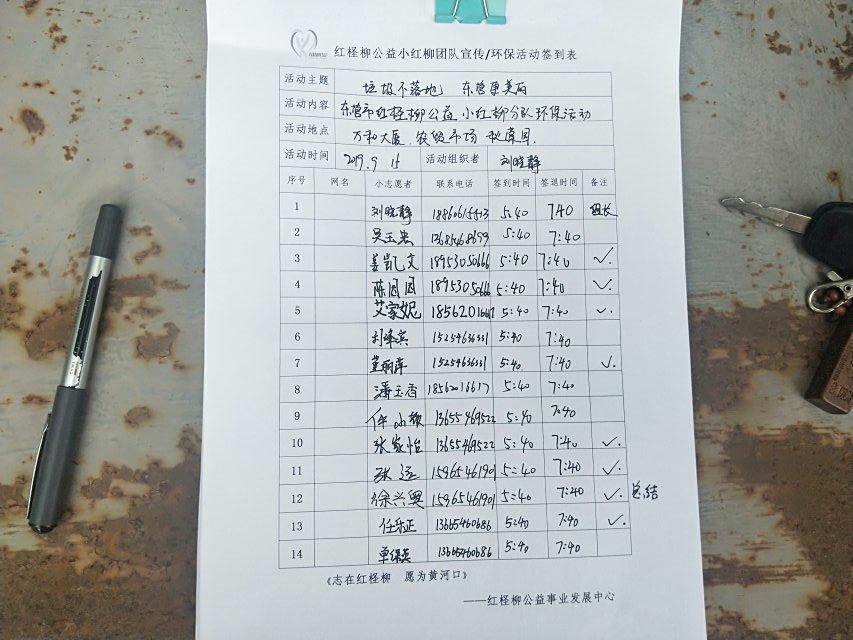 红柽柳公益小红柳团队宣传/环保活动签到表
活动主题 垃圾不落地 东营更美丽
活动内容 东营市红柽柳公益小红柳分队环保活动
活动地点 万和大厦 农贸市场
活动时间 2019.9 15 活动组织者 刘晓静
序号 网名 小志愿者 联系电话 签到时间 签退时间 备注
1 刘晓静 5:40 7:40 组长
2 吴玉忠 5:40 7:40
3 姜凯文 18953050666 5:40 7:40 ✓.
4 陈园园 5:40 7:40 ✓.
5 艾家妮 5:40 7:40 ✓.
6 15254636331 5:40 7:40
7 15254636331 5:40 7:40 ✓.
8 潘玉香 18562016617 5:40 7:40
9 13655469522 5:40 7:40
10 张家怡 13655469522 5:40 7:40 ✓.
11 张远 15965461901 5:40 7:40 ✓.
12 徐兴奥 15965461901 5:40 7:40 ✓. 总结
13 任乐正 5:40 7:40 ✓.
14 5:40 7:40
《志在红柽柳 愿为黄河口》
——红柽柳公益事业发展中心